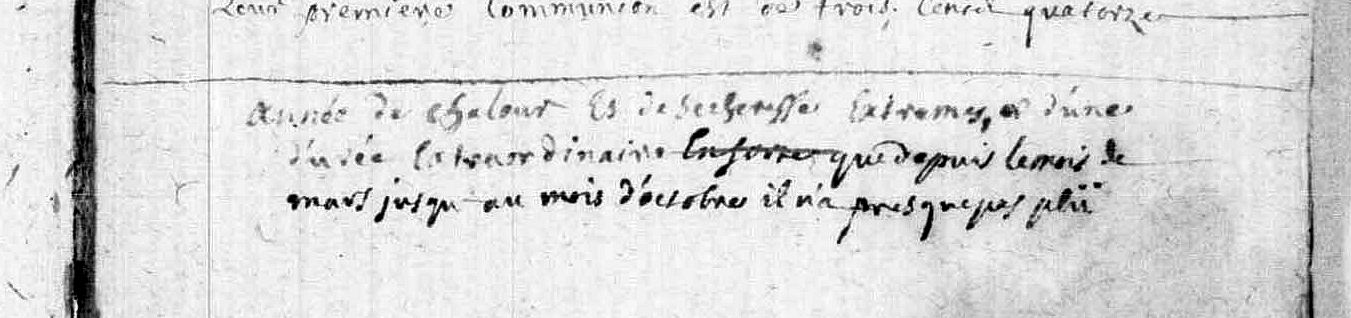 Leur premiere Communion est de trois Cents quatorze
Année de Chaleur Et de secheresse Extremes, et d'une
durée Extraordinaire Ensorte que depuis le mois de
mars jusqu'au mois d'octobre il n'a presque pas plü